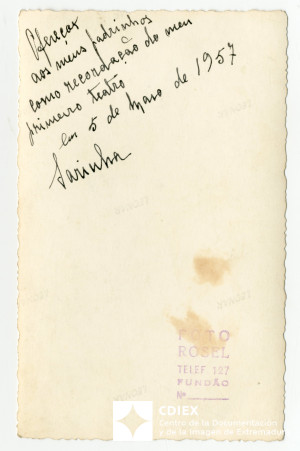 Ofereço
aos meus padrinhos
como recordação do meu
primeiro teatro
em 5 de Maio de 1957
Sarinha
FOTO
ROSEL
TELEF 127
FUNDÃO
Nº
CDIEX
Centro de la Documentación
y de la Imagen de Extremadura